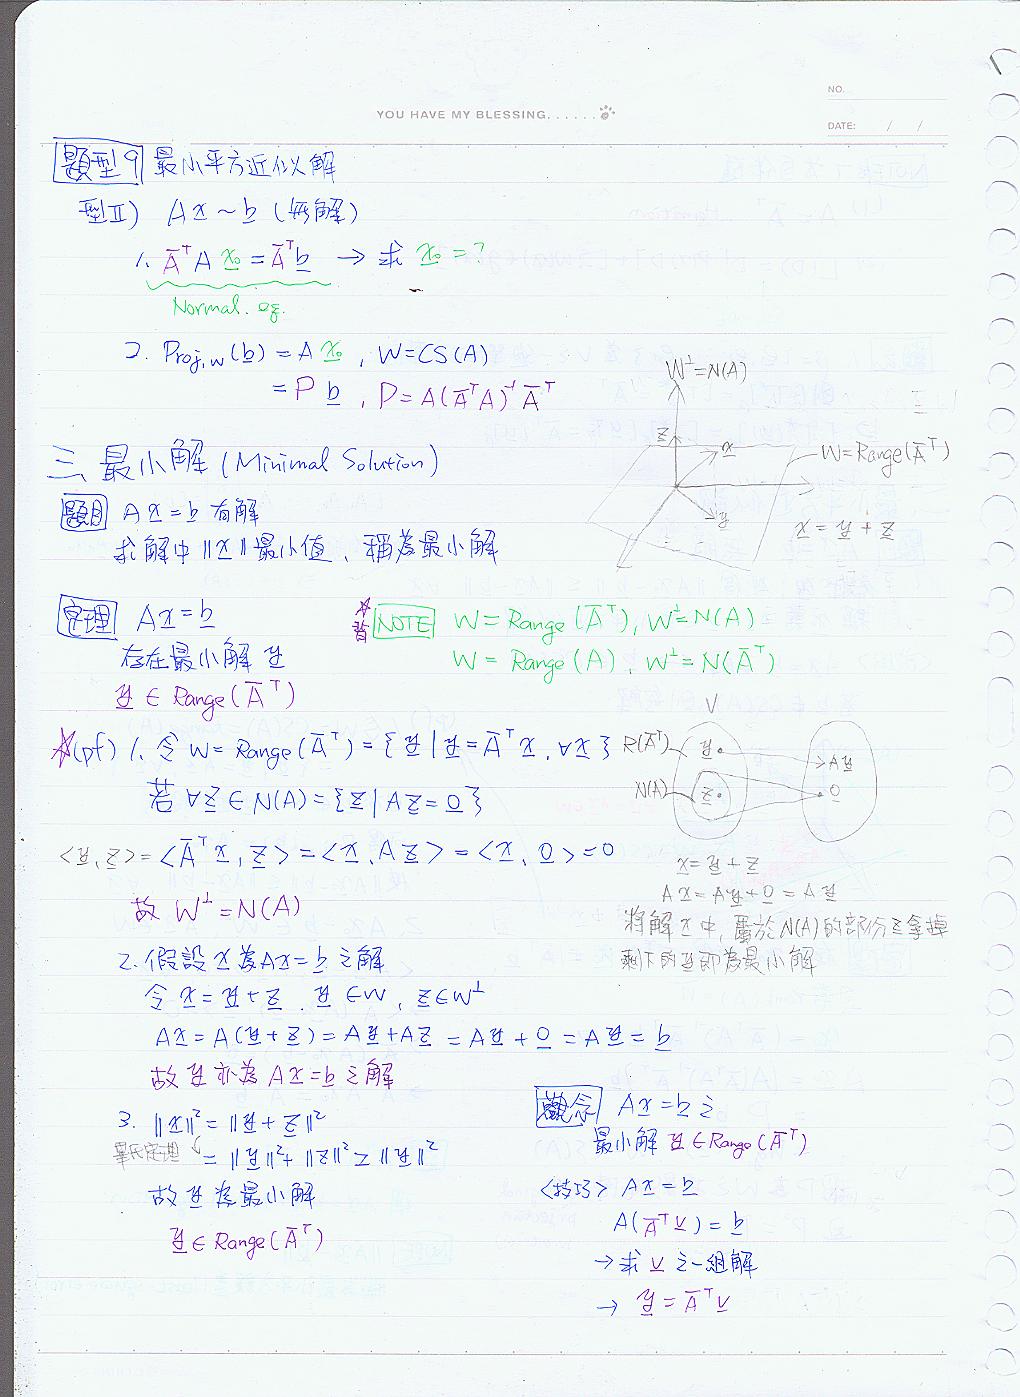 NO.
YOU HAVE MY BLESSING......
DATE: / /
題型9 最小平方近似解
型II) Ax ~ b (無解)
1. A̅ᵀA x₀ = A̅ᵀb → 求 x₀ = ?
Normal. eq.
2. Proj,w(b) = A x₀ , W=CS(A)
= P b , P = A(A̅ᵀA)⁻¹A̅ᵀ
W⊥=N(A)
z
x
W=Range(A̅ᵀ)
y
x = y + z
三、最小解 (Minimal Solution)
題目 Ax = b 有解
求解中 ||x|| 最小值、稱為最小解
定理 Ax = b
存在最小解 y
y ∈ Range(A̅ᵀ)
背 NOTE W = Range(A̅ᵀ), W⊥=N(A)
W = Range(A), W⊥=N(A̅ᵀ)
(pf) 1. 令 W = Range(A̅ᵀ) = { y | y = A̅ᵀx, ∀x }
若 ∀z ∈ N(A) = { z | Az = 0 }
<y, z> = <A̅ᵀx, z> = <x, Az> = <x, 0> = 0
故 W⊥ = N(A)
V
R(A̅ᵀ) y Ay
N(A) z 0
x = y + z
Ax = Ay + 0 = Ay
將解 x 中, 屬於 N(A) 的部份 z 拿掉
剩下的 y 即為最小解
2. 假設 x 為 Ax = b 之解
令 x = y + z . y ∈ W , z ∈ W⊥
Ax = A(y + z) = Ay + Az = Ay + 0 = Ay = b
故 y 亦為 Ax = b 之解
3. ||x||² = ||y + z||²
畢氏定理 = ||y||² + ||z||² ≥ ||y||²
故 y 為最小解
y ∈ Range(A̅ᵀ)
觀念 Ax = b 之
最小解 y ∈ Range(A̅ᵀ)
<技巧> Ax = b
A(A̅ᵀv) = b
→ 求 v 之一組解
→ y = A̅ᵀv